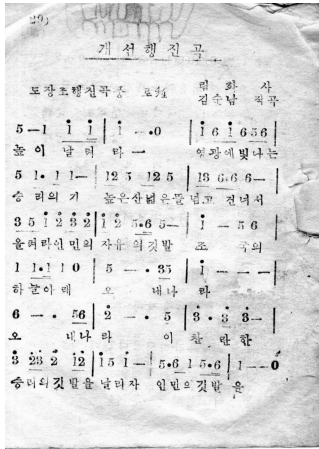 개선행진곡
도장조행진곡중 림화 사
김순남 작곡
5 — 1 i i | i — •0 | i 6 i 6 5 6
높이 날려라— 영광에빛나는
5 1 • 1 1 — | 12 5 12 5 | 13 6•6 6 —
승리의기 높은산넓은들넘고 건너서
3 5 i 2 3 2 | i 2 5•6 5 — | i — 5 6
올려라인민의자유의깃발 조국의
1 1•1 1 0 | 5 — • 35 | i — — —
하늘아래 오 내나라
6 — • 56 | 2 — • 5 | 3 • 3 3 —
오 내나라 이 찬란한
3 23 2 12 | i 5 i — | 5•6 i 5•6 | 1 — — 0
승리의깃발을날리자 인민의깃발을